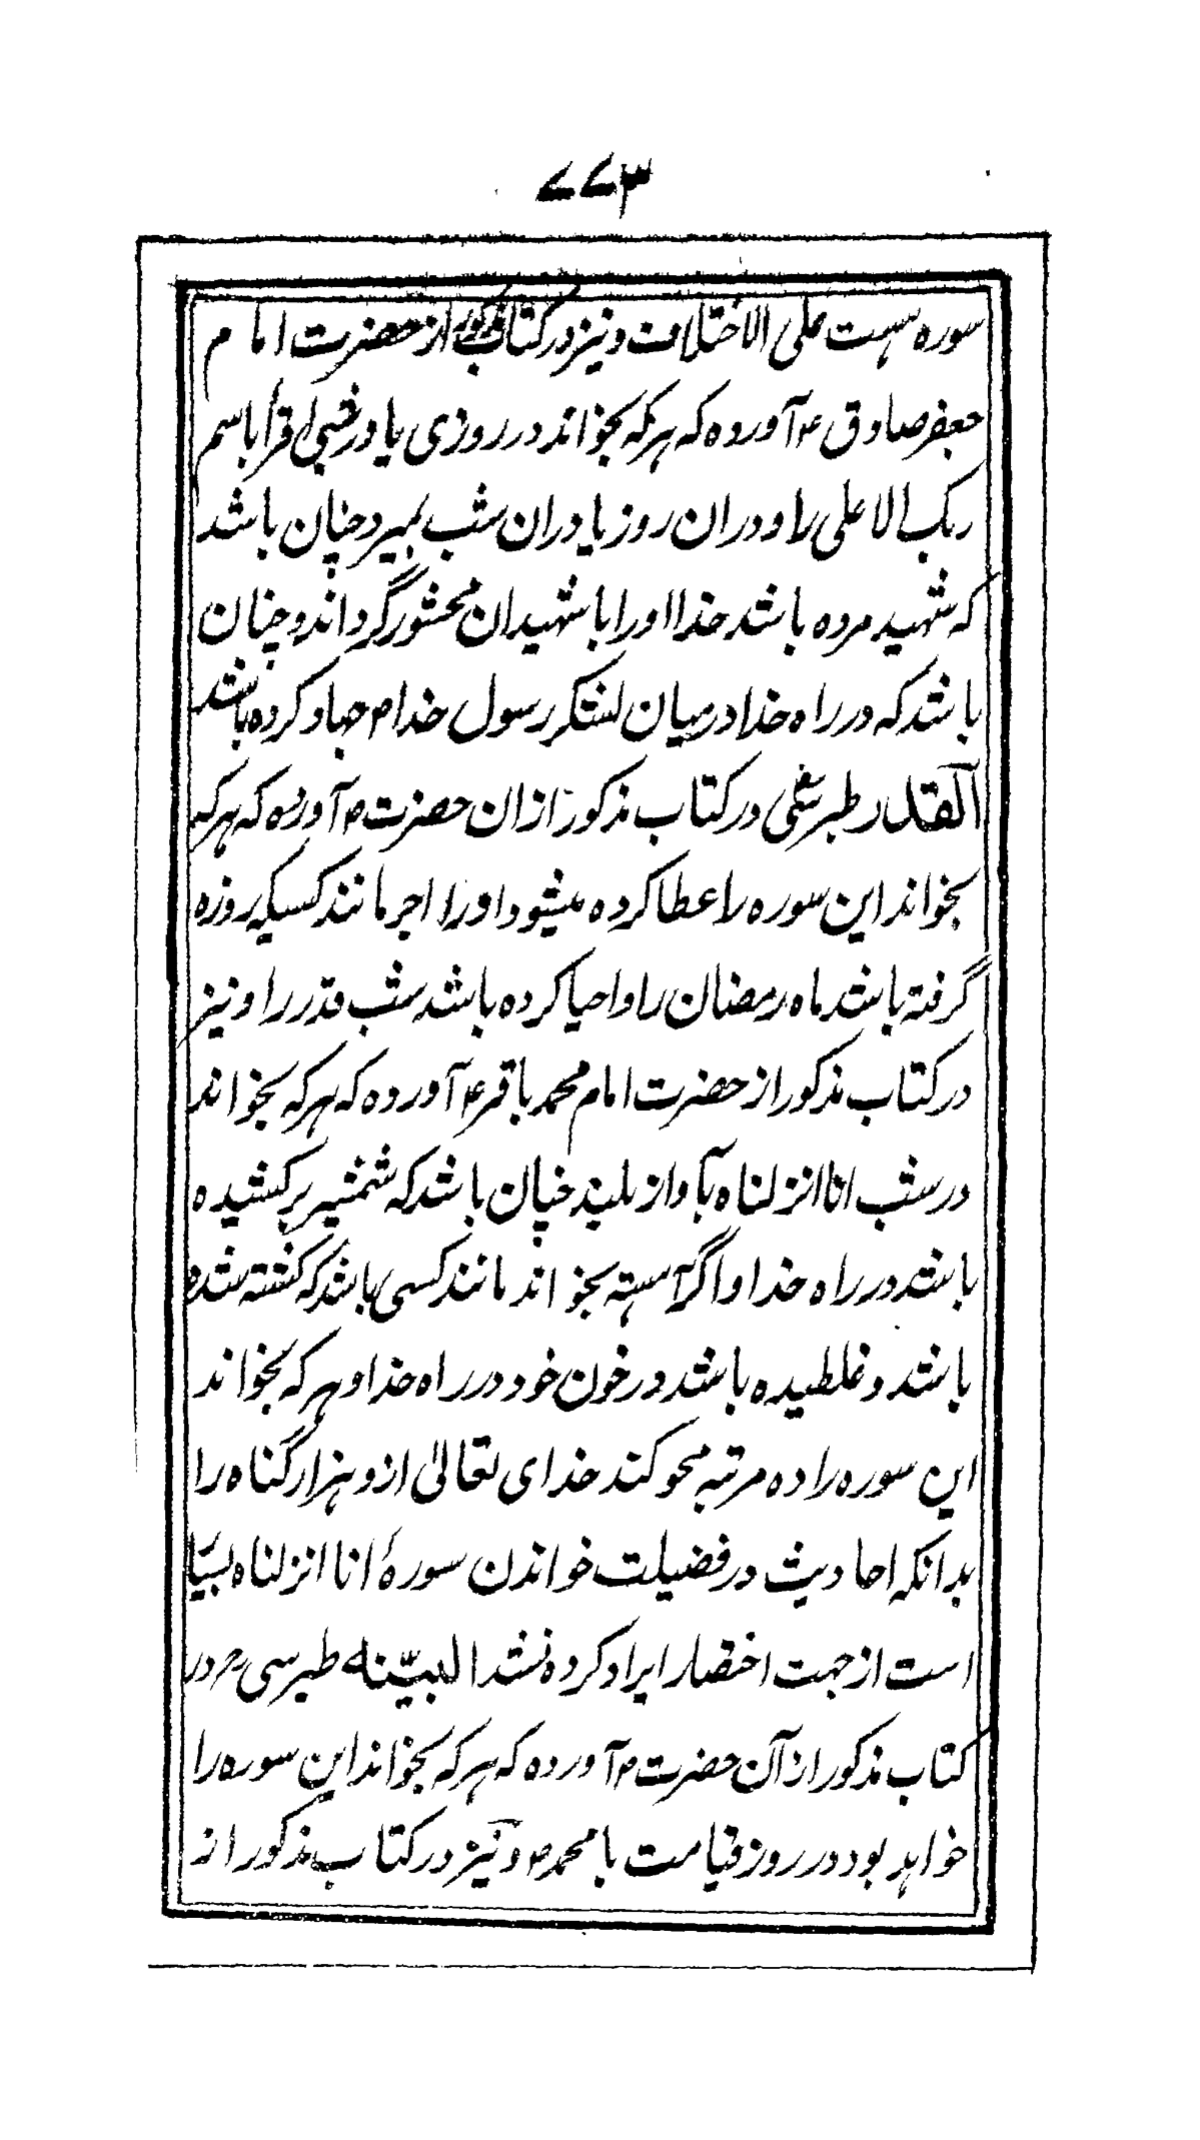 ۷۷۳
سوره هست علی الاختلاف و نیز در کتاب مذکور از حضرت امام
جعفر صادق ع آورده که هرکه بخواند در روزی یا در شبی اقرأ باسم
ربک الاعلی را و دران روز یا دران شب بمیرد چنان باشد
که شهید مرده باشد خدا اورا با شهیدان محشور گرداند و چنان
باشد که در راه خدا در میان لشکر رسول خدا ص جهاد کرده باشد
القدر طبرسی در کتاب مذکور ازان حضرت ص آورده که هرکه
بخواند این سوره را عطا کرده میشود اورا اجر مانند کسیکه روزه
گرفته باشد ماه رمضان را و احیا کرده باشد شب قدر را و نیز
در کتاب مذکور از حضرت امام محمد باقر ع آورده که هرکه بخواند
در شب انا انزلناه بآواز بلند چنان باشد که شمشیر برکشیده
باشد در راه خدا و اگر آهسته بخواند مانند کسی باشد که کشته شده
باشد و غلطیده باشد در خون خود در راه خدا و هرکه بخواند
این سوره را ده مرتبه محو کند خدای تعالیٰ ازو هزار گناه را
بدانکه احادیث در فضیلت خواندن سورهٔ انا انزلناه بسیا
است از جهت اختصار ایراد کرده نشد البیّنه طبرسی رح در
کتاب مذکور از آن حضرت ص آورده که هرکه بخواند این سوره را
خواهد بود در روز قیامت با محمد ص و نیز در کتاب مذکور از